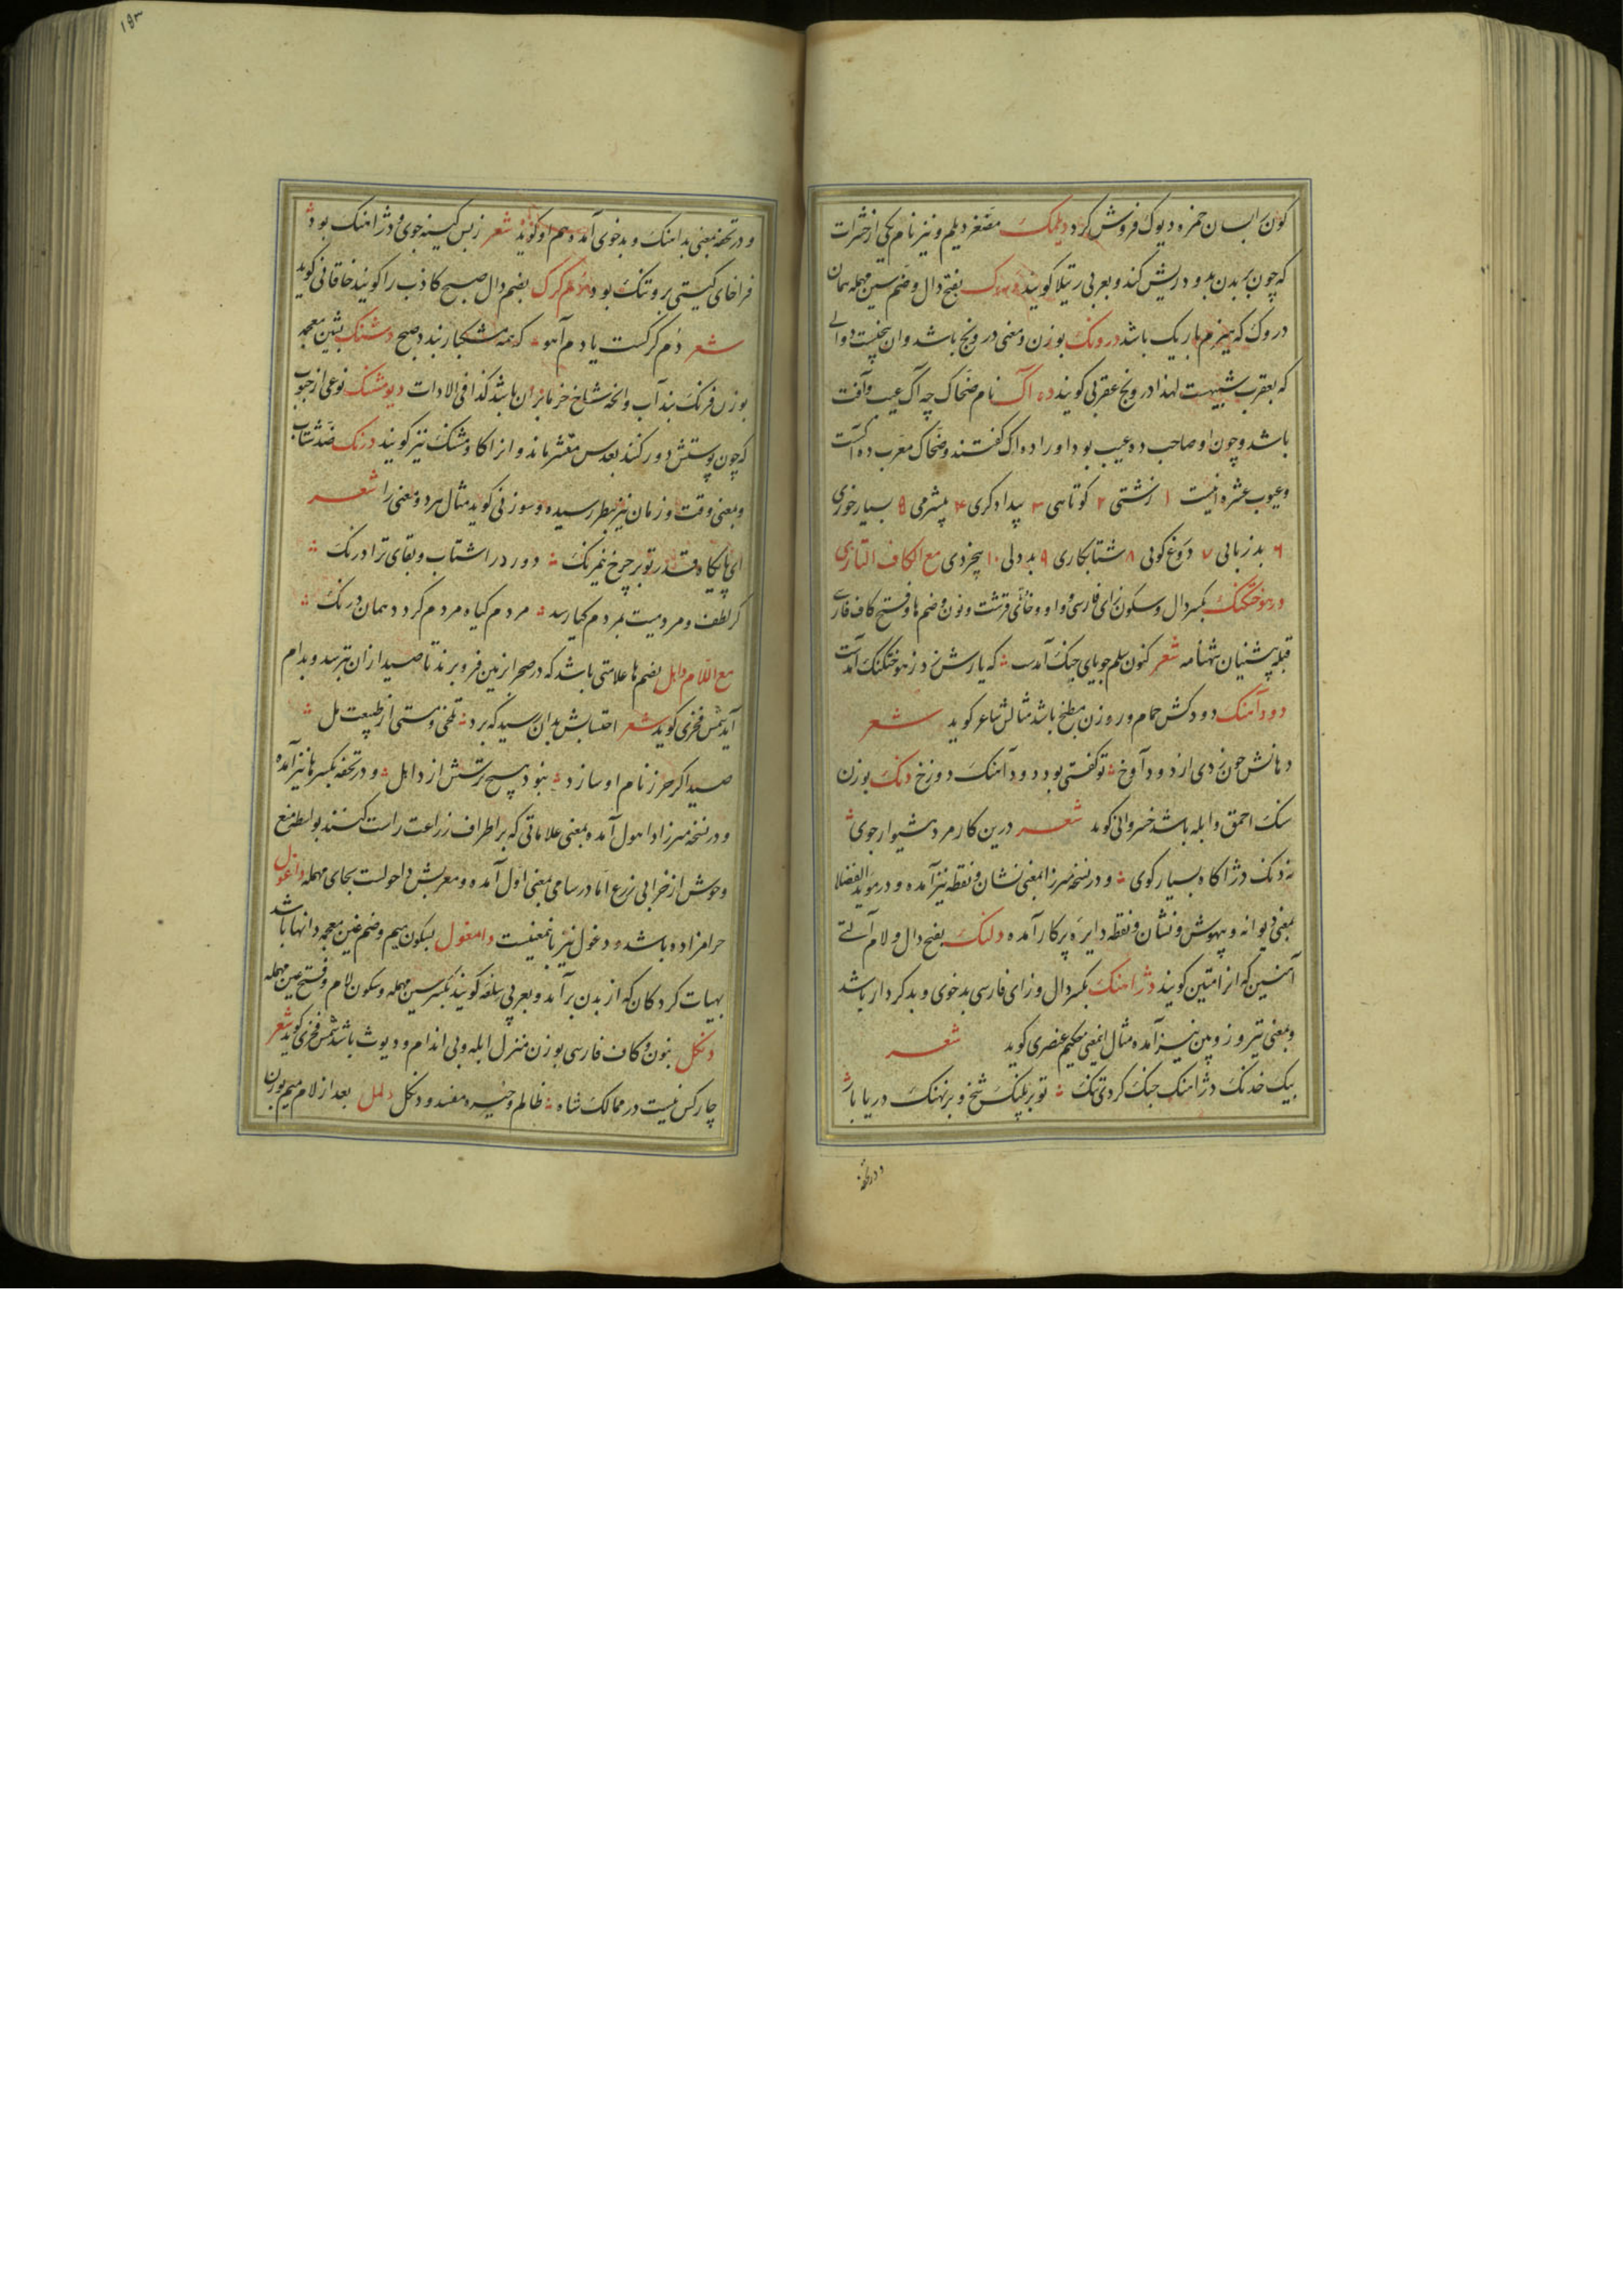 کون ابسان خمره دیوک فروش کرد دیلمک مصغر دیلم و نیز نام یکی از حشرات
که چون بر بدن بدود ریش کند و بعربی رتیلا کویند بفتح دال و ضم سین مهمله همان
دروک که هیزم باریک باشد درونک بوزن و معنی درونج باشد و ان بیخیست دوائی
که بعقرب شبیهست لهذا درونج عقربی کویند ده آک نام ضحاک چه آک عیب و آفت
باشد و چون او صاحب ده عیب بود او را ده اک گفتند و ضحاک معرب ده آکست
و عیوب عشره اینست ۱ زشتی ۲ کوتاهی ۳ بیدادکری ۴ بیشرمی ۵ بسیارخوری
۶ بد زبانی ۷ دروغ کوئی ۸ شتابکاری ۹ بد دلی ۱۰ بیخردی مع الکاف التازی
دزهوختکنک بکسر دال و سکون زای فارسی و واو و خا و تای قرشت و نون و ضم ها و فتح کاف فارسی
قبله پیشنیان شهنامه شعر کنون سلم جویای جنک آمدست که یارش ز دزهوختکنک آمدست
دودآهنک دودکش حمام و روزن مطبخ باشد مثالش شاعر کوید شعر
دهانش چون بزدی از دود آوخ تو کفتی بود دودآهنک دوزخ دنک بوزن
سنک احمق و ابله باشد خسروانی کوید شعر درین کار مرد هشیوار جوی
نه دنک دژاکاه بسیار کوی و در نسخه میرزا بمعنی نشان و نقطه نیز آمده و در موید الفضلا
بمعنی دیوانه و بیهوش و نشان و نقطه دایره پرکار آمده دلنک بفتح دال و لام آلتی
آهنین که انرا متین کویند دژاهنک بکسر دال و زای فارسی بدخوی و بدکردار باشد
و بمعنی تیر و زوپین نیز آمده مثال اینمعنی حکیم عنصری کوید شعر
بیک خدنک دژاهنک جنک کردی تنک تو بر پلنک شخ و بر نهنک دریا بار
و در تحفه
۱۵۳
و در تحفه بمعنی بد آهنک و بدخوی آمده و هم او کوید شعر ز بس کینه جوی و دژاهنک بود
فراخای کیتی برو تنک بود دم کرک بضم دال صبح کاذب را کویند خاقانی کوید
شعر دم کرکست یا دم آهو که همه مشکبار بند صبح دشنک بشین معجمه
بوزن فرنک بند آب و انچه شاخ خرما بران باشد کذا فی الادات دیومشنک نوعی از حبوب
که چون پوستش دور کنند بعدس مقشر ماند و انرا کاومشنک نیز کویند درنک ضد شتاب
و بمعنی وقت و زمان نیز بنظر رسیده و سوزنی کوید مثال هر دو معنی را شعر
ای پایکاه قدر تو بر چرخ نیرنک دور در اشتاب و بقای ترا درنک
کر لطف و مردمیت بمردم کیا رسد مردم کیاه مردم کردد همان درنک
مع اللام داهل بضم ها علامتی باشد که در صحرا بزمین فرو برند تا صید ازان بترسد و بدام
آید شمس فخری کوید شعر احتسابش بدان رسید که برد تلخی و مستی از طبیعت مل
صید اکر حرز نام او سازد نبود هیچ ترسش از داهل و در تحفه بکسر ها نیز آمده
و در نسخه میرزا داهول آمده بمعنی علاماتی که بر اطراف زراعت راست کنند بواسطه منع
وحوش از خرابی زرع اما در سامی بمعنی اول آمده و معربش داحولست بحای مهمله داغول
حرامزاده باشد و دغول نیز باینمعنیست دامغول بسکون میم و ضم غین معجمه دانها باشد
بهیات کردکان که از بدن برآمد و بعربی سلعه کویند بکسر سین مهمله و سکون لام و فتح عین مهمله
دنکل بنون و کاف فارسی بوزن منزل ابله و بی اندام و دیوث باشد شمس فخری کوید شعر
چار کس نیست در ممالک شاه ظالم و خیره مفسد و دنکل دلمل بعد از لام میم بوزن